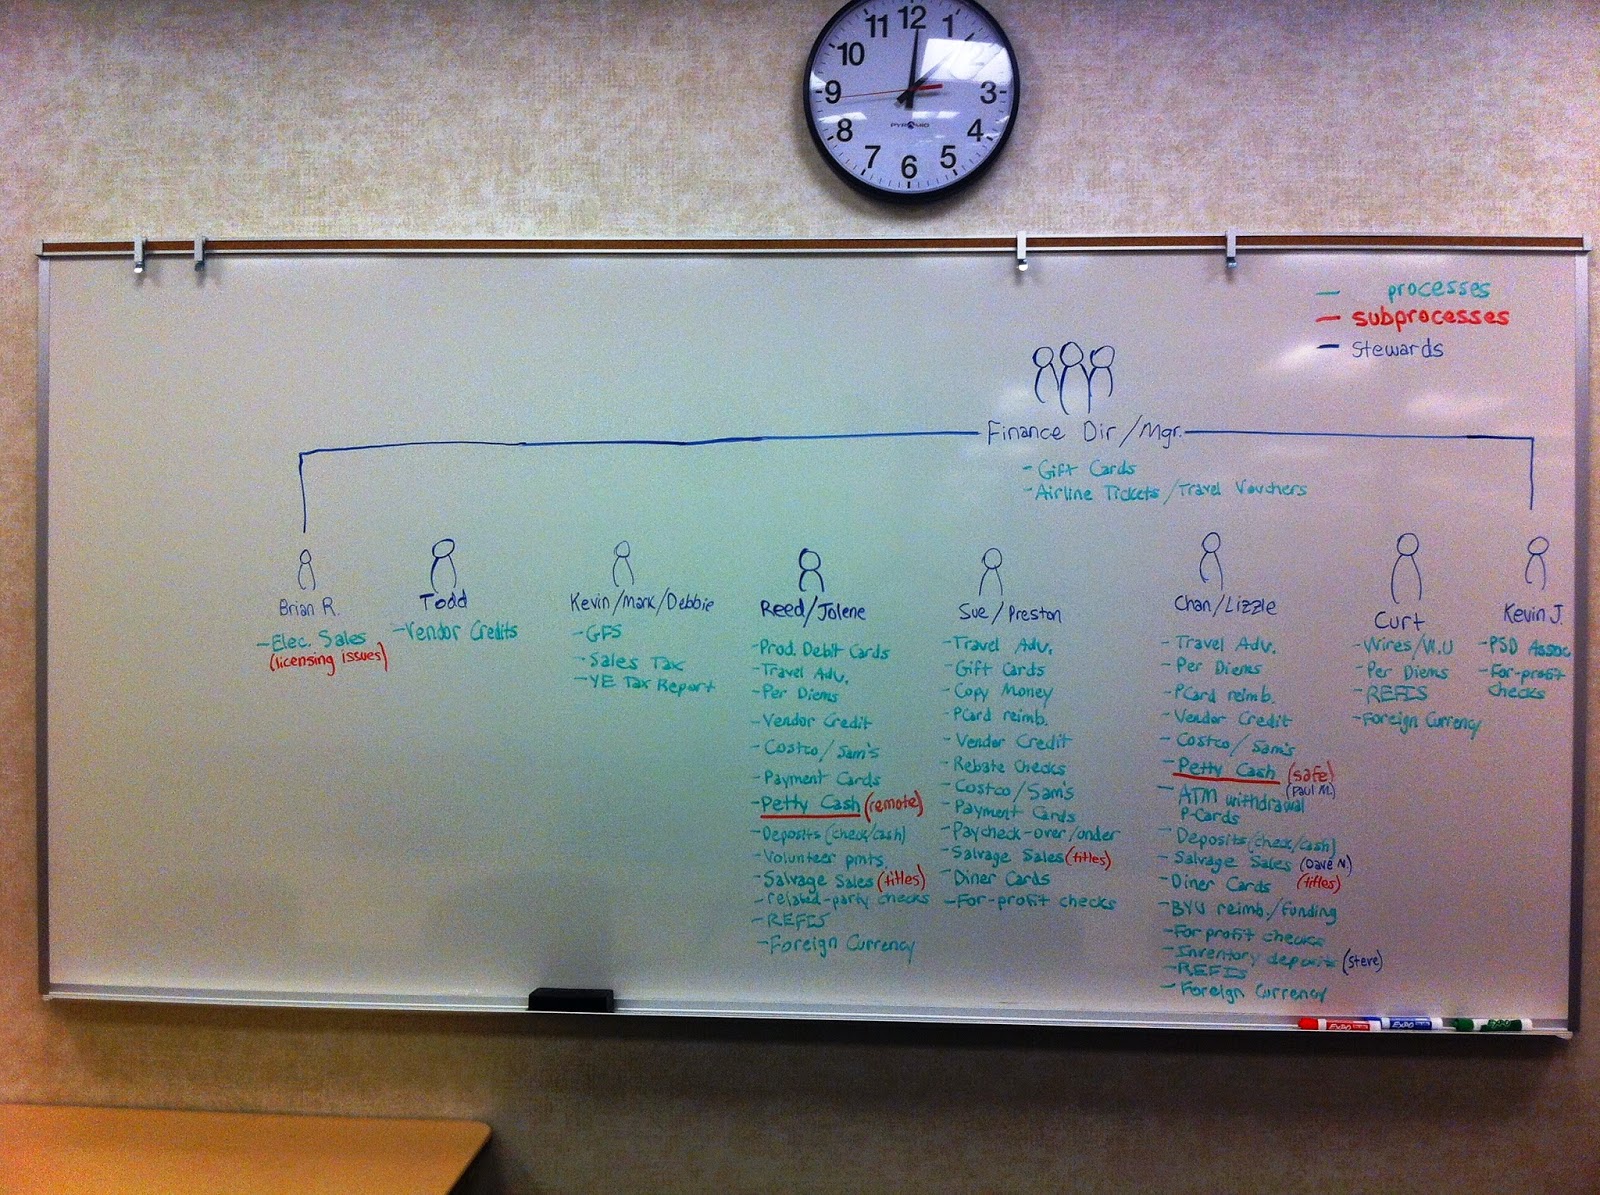 11 12 1
10
9 3
8 4
7 6 5
PYRAMID
— processes
— subprocesses
— Stewards
Finance Dir/Mgr.
- Gift Cards
- Airline Tickets/Travel Vouchers
Brian R.
- Elec. Sales
(licensing issues)
Todd
- Vendor Credits
Kevin/Mark/Debbie
- GFS
- Sales Tax
- YE Tax Report
Reed/Jolene
- Prod. Debit Cards
- Travel Adv.
- Per Diems
- Vendor Credit
- Costco/Sam's
- Payment Cards
- Petty Cash (remote)
- Deposits (check/cash)
- Volunteer pmts.
- Salvage Sales (titles)
- related-party checks
- REFIS
- Foreign Currency
Sue/Preston
- Travel Adv.
- Gift Cards
- Copy Money
- PCard reimb.
- Vendor Credit
- Rebate Checks
- Costco/Sam's
- Payment Cards
- Paycheck-over/under
- Salvage Sales (titles)
- Diner Cards
- For-profit checks
Chan/Lizzle
- Travel Adv.
- Per Diems
- PCard reimb.
- Vendor Credit
- Costco/Sam's
- Petty Cash (safe)
(Paul M.)
- ATM withdrawal
P-Cards
- Deposits (check/cash)
- Salvage Sales (Dave N.)
- Diner Cards (titles)
- BYU reimb./funding
- For profit checks
- Inventory deposits (Steve)
- REFIS
- Foreign Currency
Curt
- Wires/W.U
- Per Diems
- REFIS
- Foreign Currency
Kevin J.
- PSD Assoc
- For-profit
checks
EXPO
EXPO
EXPO